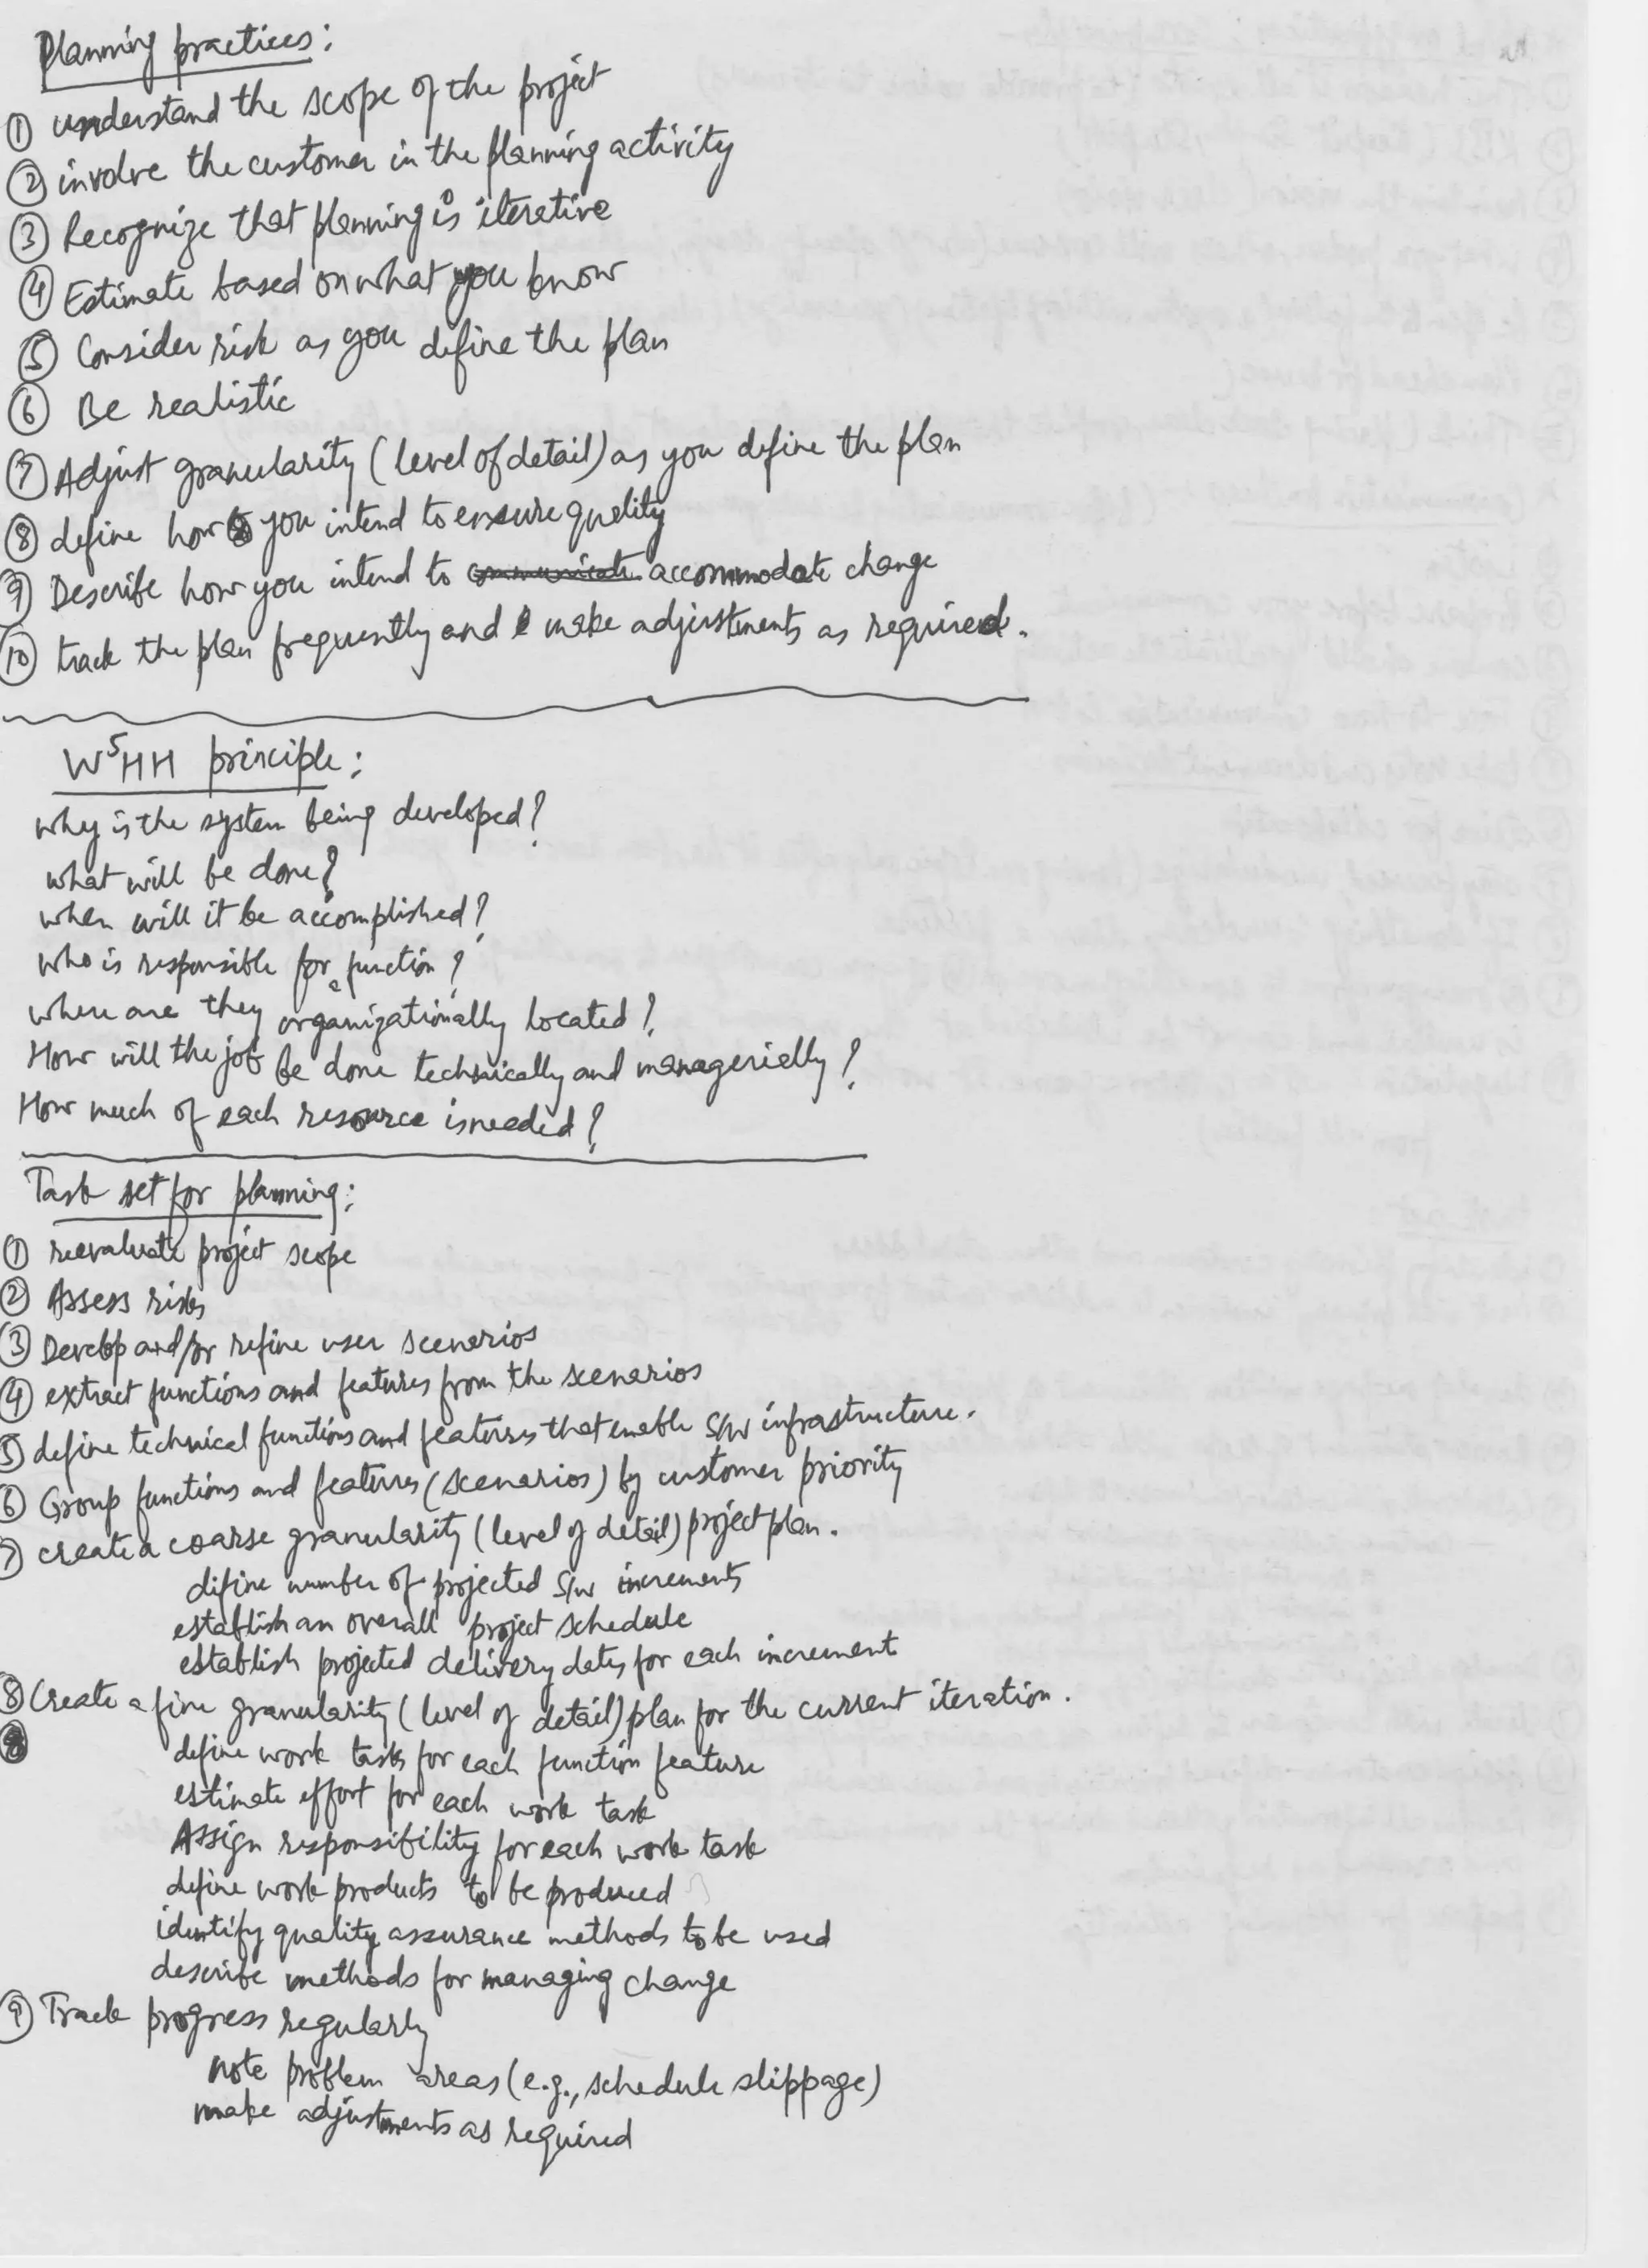 Planning practices:
① understand the scope of the project
② involve the customer in the planning activity
③ Recognize that planning is iterative
④ Estimate based on what you know
⑤ Consider risk as you define the plan
⑥ Be realistic
⑦ Adjust granularity (level of detail) as you define the plan
⑧ define how you intend to ensure quality
⑨ Describe how you intend to communicate accommodate change
⑩ track the plan frequently and make adjustments as required.
W⁵HH principle:
why is the system being developed?
what will be done?
when will it be accomplished?
who is responsible for a function?
where are they organizationally located?
How will the job be done technically and managerially?
How much of each resource is needed?
Task set for planning:
① reevaluate project scope
② Assess risks
③ Develop and/or refine user scenarios
④ extract functions and features from the scenarios
⑤ define technical functions and features that enable S/W infrastructure.
⑥ Group functions and features (scenarios) by customer priority
⑦ create a coarse granularity (level of detail) project plan.
define number of projected S/W increments
establish an overall project schedule
establish projected delivery dates for each increment
⑧ Create a fine granularity (level of detail) plan for the current iteration.
define work tasks for each function feature
estimate effort for each work task
Assign responsibility for each work task
define work products to be produced
identify quality assurance methods to be used
describe methods for managing change
⑨ Track progress regularly
note problem areas (e.g., schedule slippage)
make adjustments as required